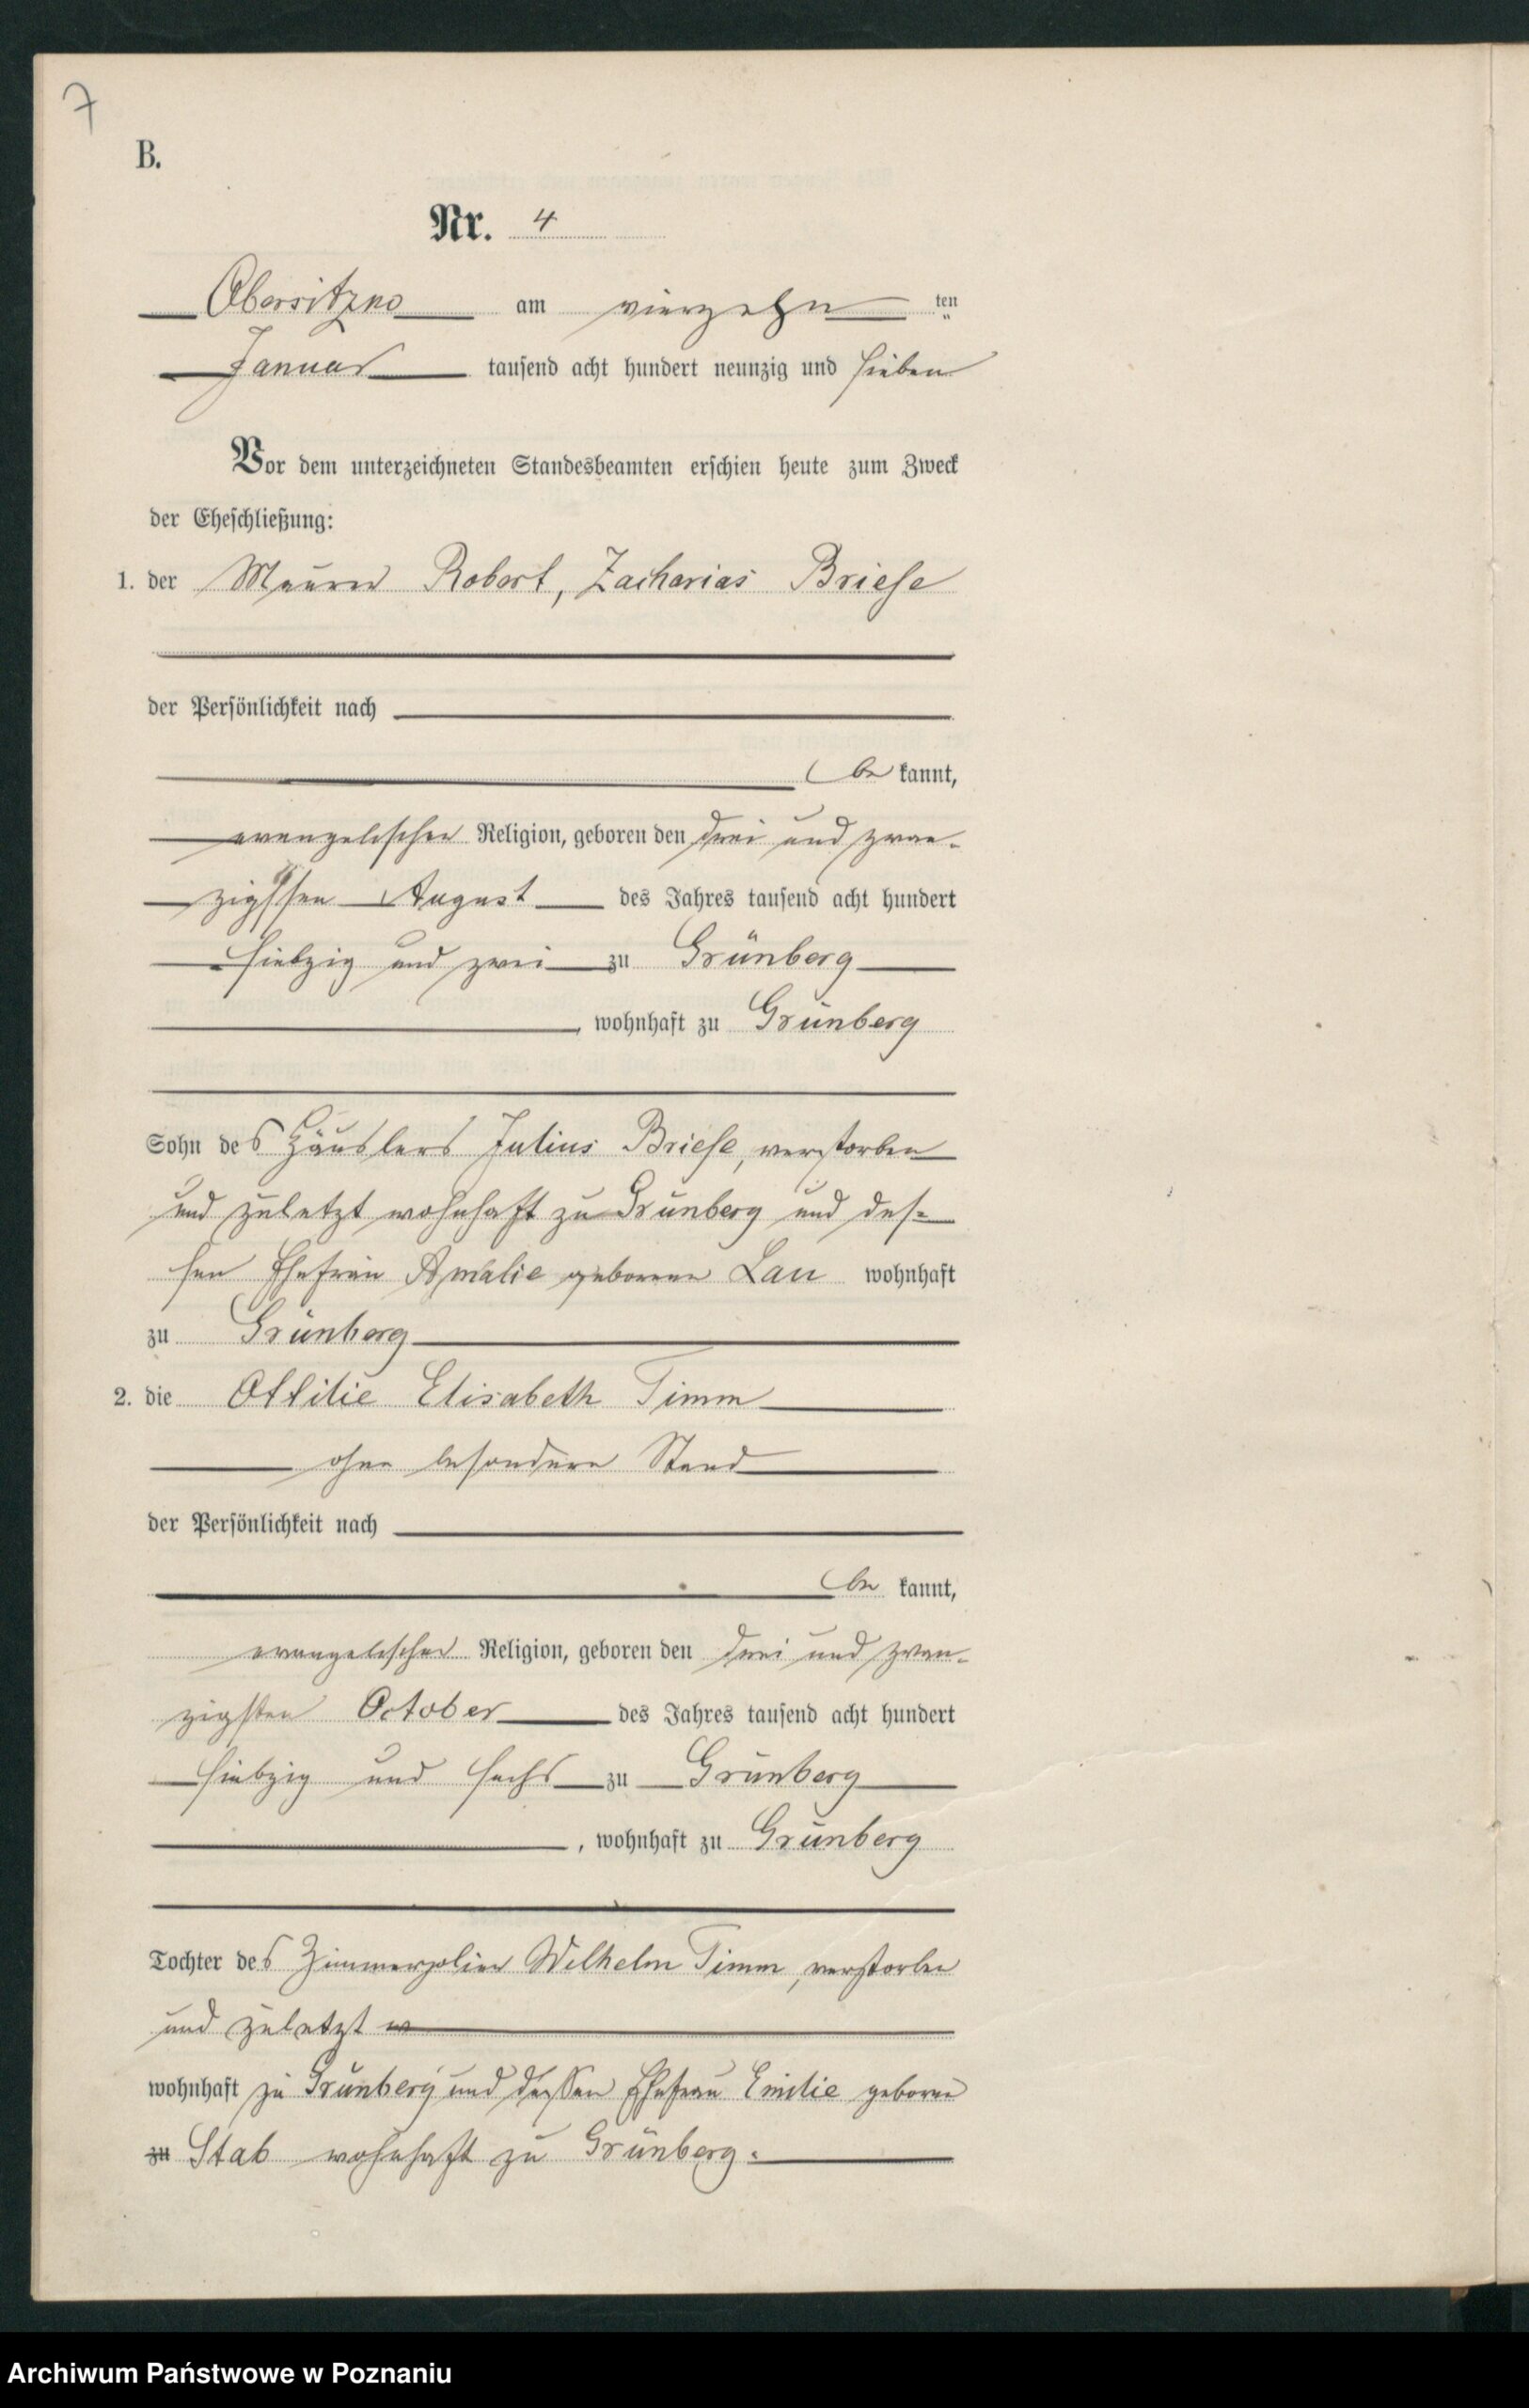 7
B.
Nr. 4
Obersitzno am vierzehn ten
Januar tausend acht hundert neunzig und sieben
Vor dem unterzeichneten Standesbeamten erschien heute zum Zweck
der Eheschließung:
1. der Maurer Robert, Zacharias Briese
der Persönlichkeit nach
be kannt,
evangelischer Religion, geboren den drei und zwan-
zigsten August des Jahres tausend acht hundert
siebzig und zwei zu Grünberg
, wohnhaft zu Grünberg
Sohn des Häuslers Julius Briese, verstorben
und zuletzt wohnhaft zu Grünberg und des-
sen Ehefrau Amalie geborene Lau wohnhaft
zu Grünberg
2. die Ottilie Elisabeth Timm
ohne besondern Stand
der Persönlichkeit nach
be kannt,
evangelischer Religion, geboren den drei und zwan-
zigsten October des Jahres tausend acht hundert
siebzig und sechs zu Grünberg
, wohnhaft zu Grünberg
Tochter des Zimmerpolier Wilhelm Timm, verstorben
und zuletzt w
wohnhaft zu Grünberg und dessen Ehefrau Emilie geborene
zu Stab wohnhaft zu Grünberg.
Archiwum Państwowe w Poznaniu